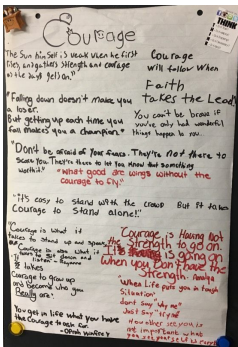 THINK
Courage
The Sun himself is weak when he first
rises, and gathers strength and courage
as the day gets on."
Courage
will follow when
Faith
takes the Lead
"Falling down doesn't make you
a loser.
But getting up each time you
fall makes you a champion."
You can't be brave if
you've only had wonderful
things happen to you.
"Don't be afraid of your fears. They're not there to
scare you. They're there to let you know that something
worth it."
"What good are wings without the
courage to fly"
"it's easy to stand with the crowd But it takes
Courage to Stand alone!"
Courage is what it
takes to stand up and speak
Courage is also what it
takes to sit down and
listen
It takes
Courage to grow up
and Become who you
Really are!
You get in life what you have
the Courage to ask for
-Oprah Winfrey
Courage is Having Not
the Strength to go on.
It's going on
when you Don't have the
Strength.
"When Life puts you in tough
Situation"
don't say "why me"
Just say "try me"
How others see you is
not important